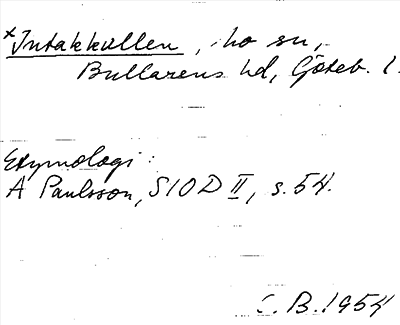 *Intakkullen, ho sn,
Bullarens hd, Göteb. l.
Etymologi:
A Paulsson, SIOD II, s. 54.
C. B. 1954